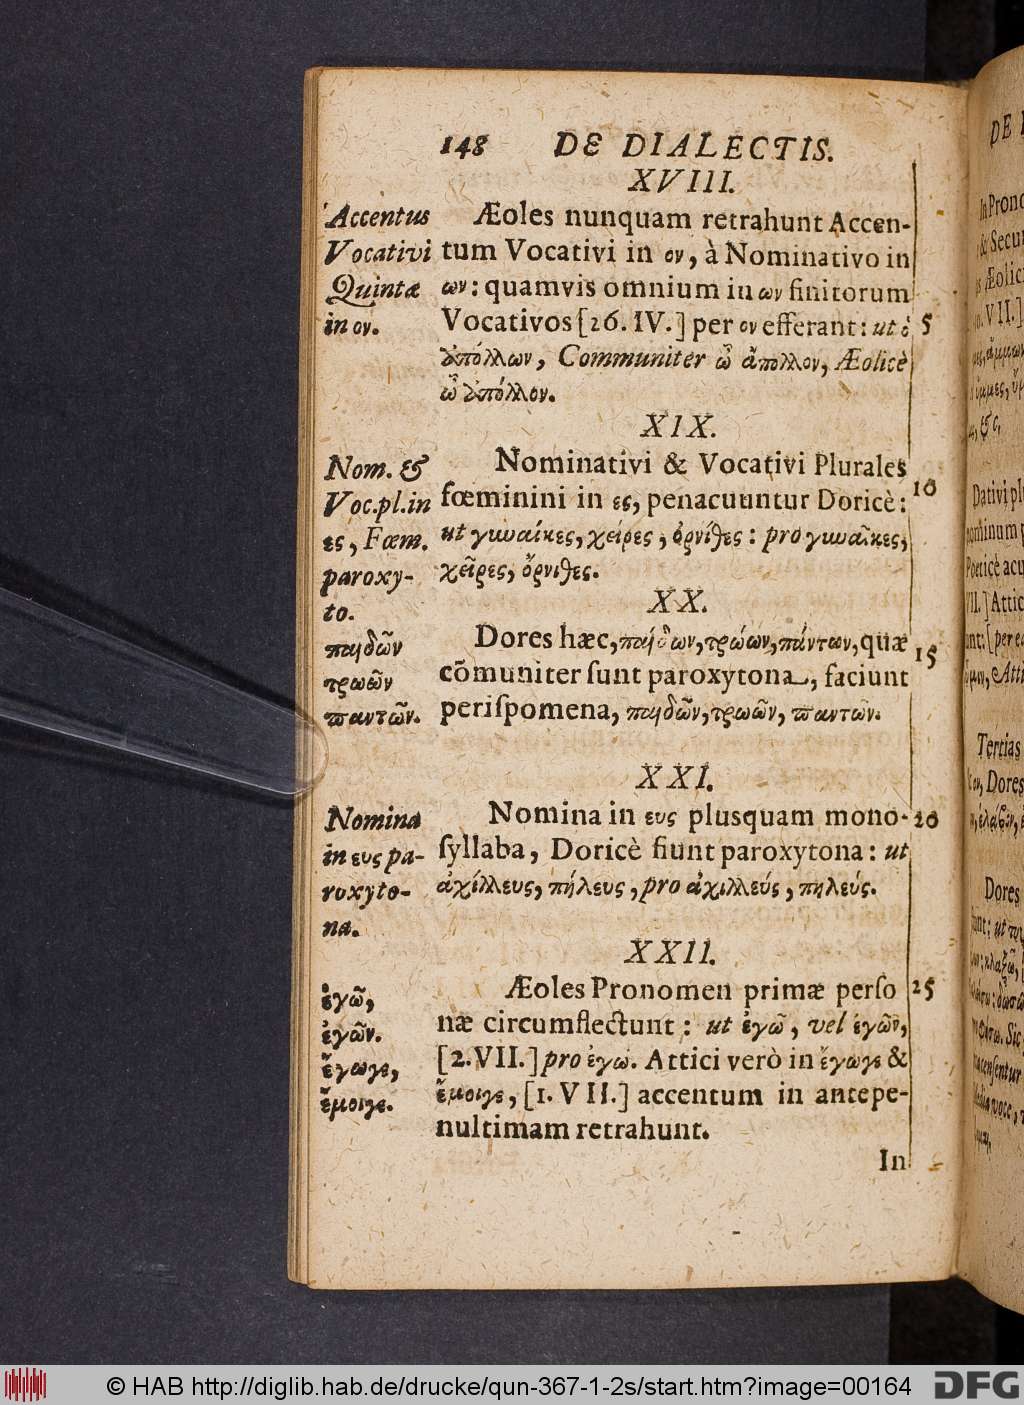 148 DE DIALECTIS.
XVIII.
Accentus
Vocativi
Quintæ
in ον.
Æoles nunquam retrahunt Accen-
tum Vocativi in ον, à Nominativo in
ων: quamvis omnium in ων finitorum
Vocativos [26. IV.] per ον efferant: ut ὁ
Ἀπόλλων, Communiter ὦ ἄπολλον, Æolicè
ὦ Ἀπόλλον.
5
XIX.
Nom. &
Voc. pl. in
ες, Fœm.
paroxy-
to.
Nominativi & Vocativi Plurales
fœminini in ες, penacuuntur Doricè:
ut γυναίκες, χείρες, ὀρνίθες: pro γυναῖκες,
χεῖρες, ὄρνιθες.
10
XX.
παιδῶν
τρωῶν
παντῶν.
Dores hæc, παίδων, τρώων, πάντων, quæ
cõmuniter ſunt paroxytona, faciunt
periſpomena, παιδῶν, τρωῶν, παντῶν.
15
XXI.
Nomina
in ευς pa-
roxyto-
na.
Nomina in ευς plusquam mono-
ſyllaba, Doricè fiunt paroxytona: ut
ἀχίλλευς, πήλευς, pro ἀχιλλεύς, πηλεύς.
20
XXII.
ἐγῶ,
ἐγῶν.
ἔγωγε,
ἔμοιγε.
Æoles Pronomen primæ perſo
næ circumflectunt: ut ἐγῶ, vel ἐγῶν,
[2. VII.] pro ἐγω. Attici verò in ἔγωγε &
ἔμοιγε, [1. VII.] accentum in antepe-
nultimam retrahunt.
25
In
© HAB http://diglib.hab.de/drucke/qun-367-1-2s/start.htm?image=00164
DFG